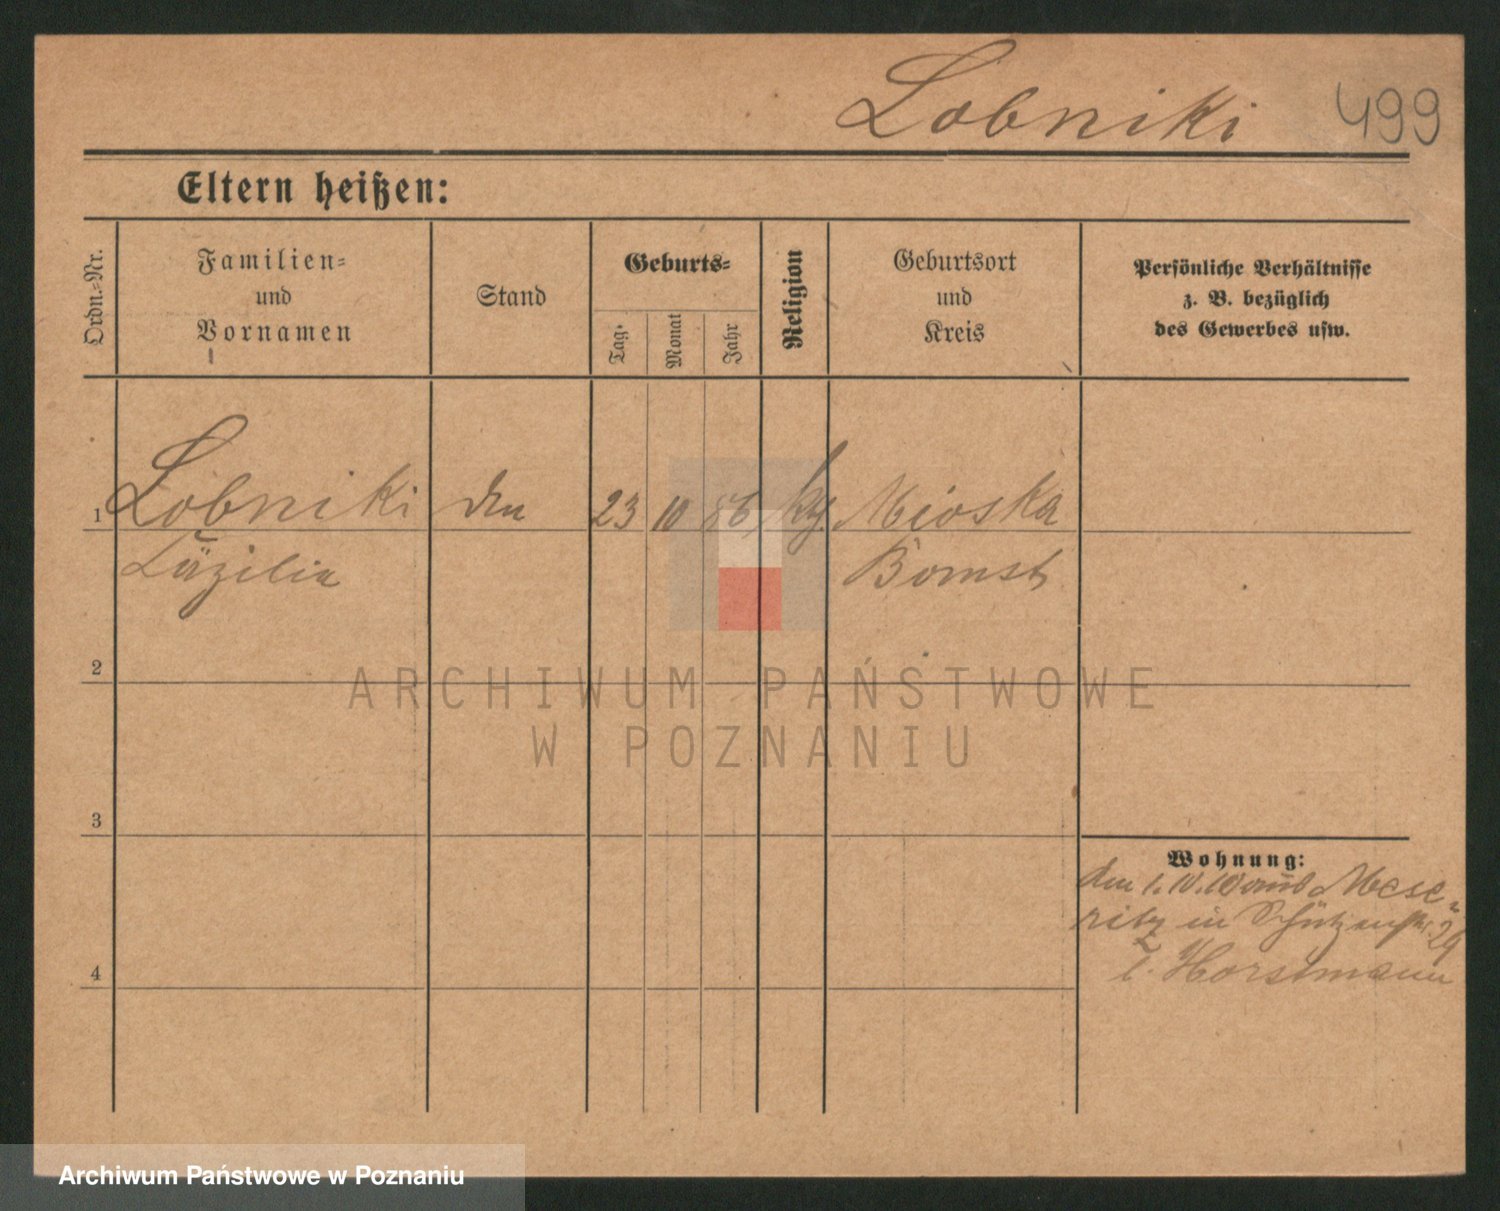 Lobniki 499
Eltern heißen:
Ordn.-Nr.
Familien-
und
Vornamen
Stand
Geburts-
Tag.
Monat
Jahr
Religion
Geburtsort
und
Kreis
Persönliche Verhältnisse
z. B. bezüglich
des Gewerbes usw.
1 Lobniki 23 10 86 Mioska
Cäzilia Bomst
2
ARCHIWUM PAŃSTWOWE
W POZNANIU
3
Wohnung:
den 1. 10. 10 Mese-
ritz in Schützenstr. 29
b. Horstmann
4
Archiwum Państwowe w Poznaniu